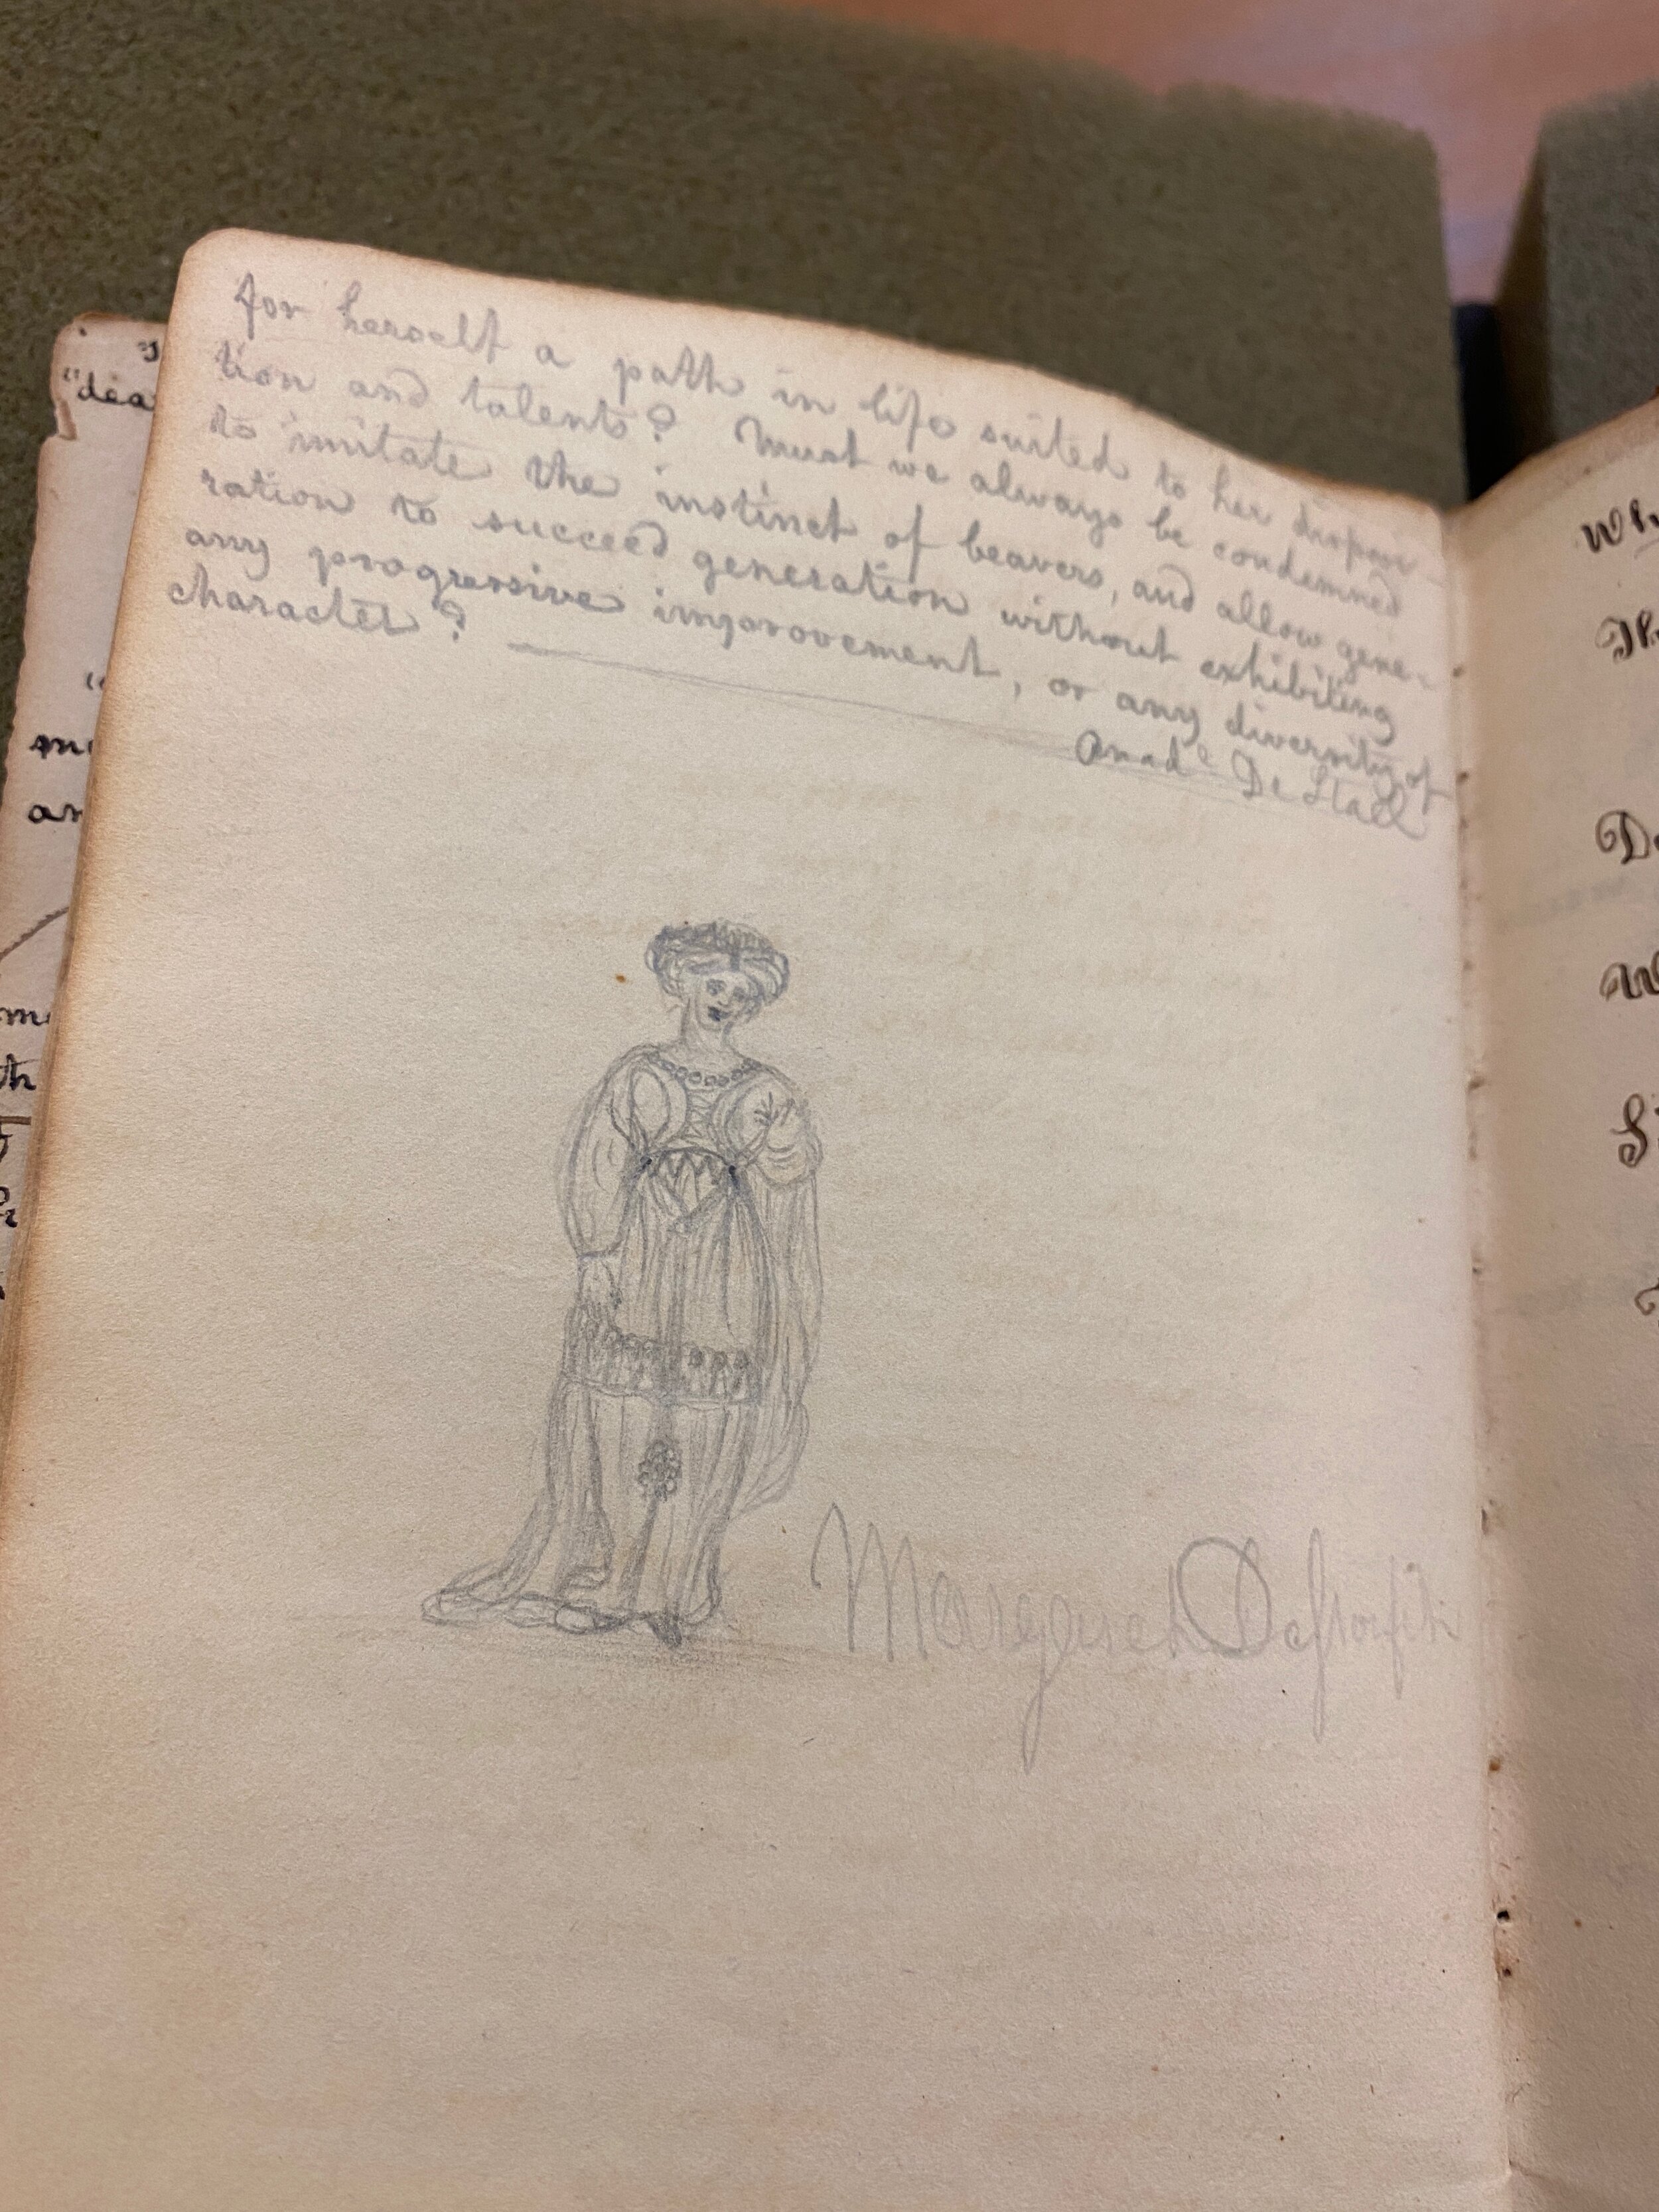 for herself a path in life suited to her disposi-
tion and talents? Must we always be condemned
to imitate the instinct of beavers, and allow gene-
ration to succeed generation without exhibiting
any progressive improvement, or any diversity of
character?
Mad^e De Stael
Margaret
"dea
an
th
Wh
De